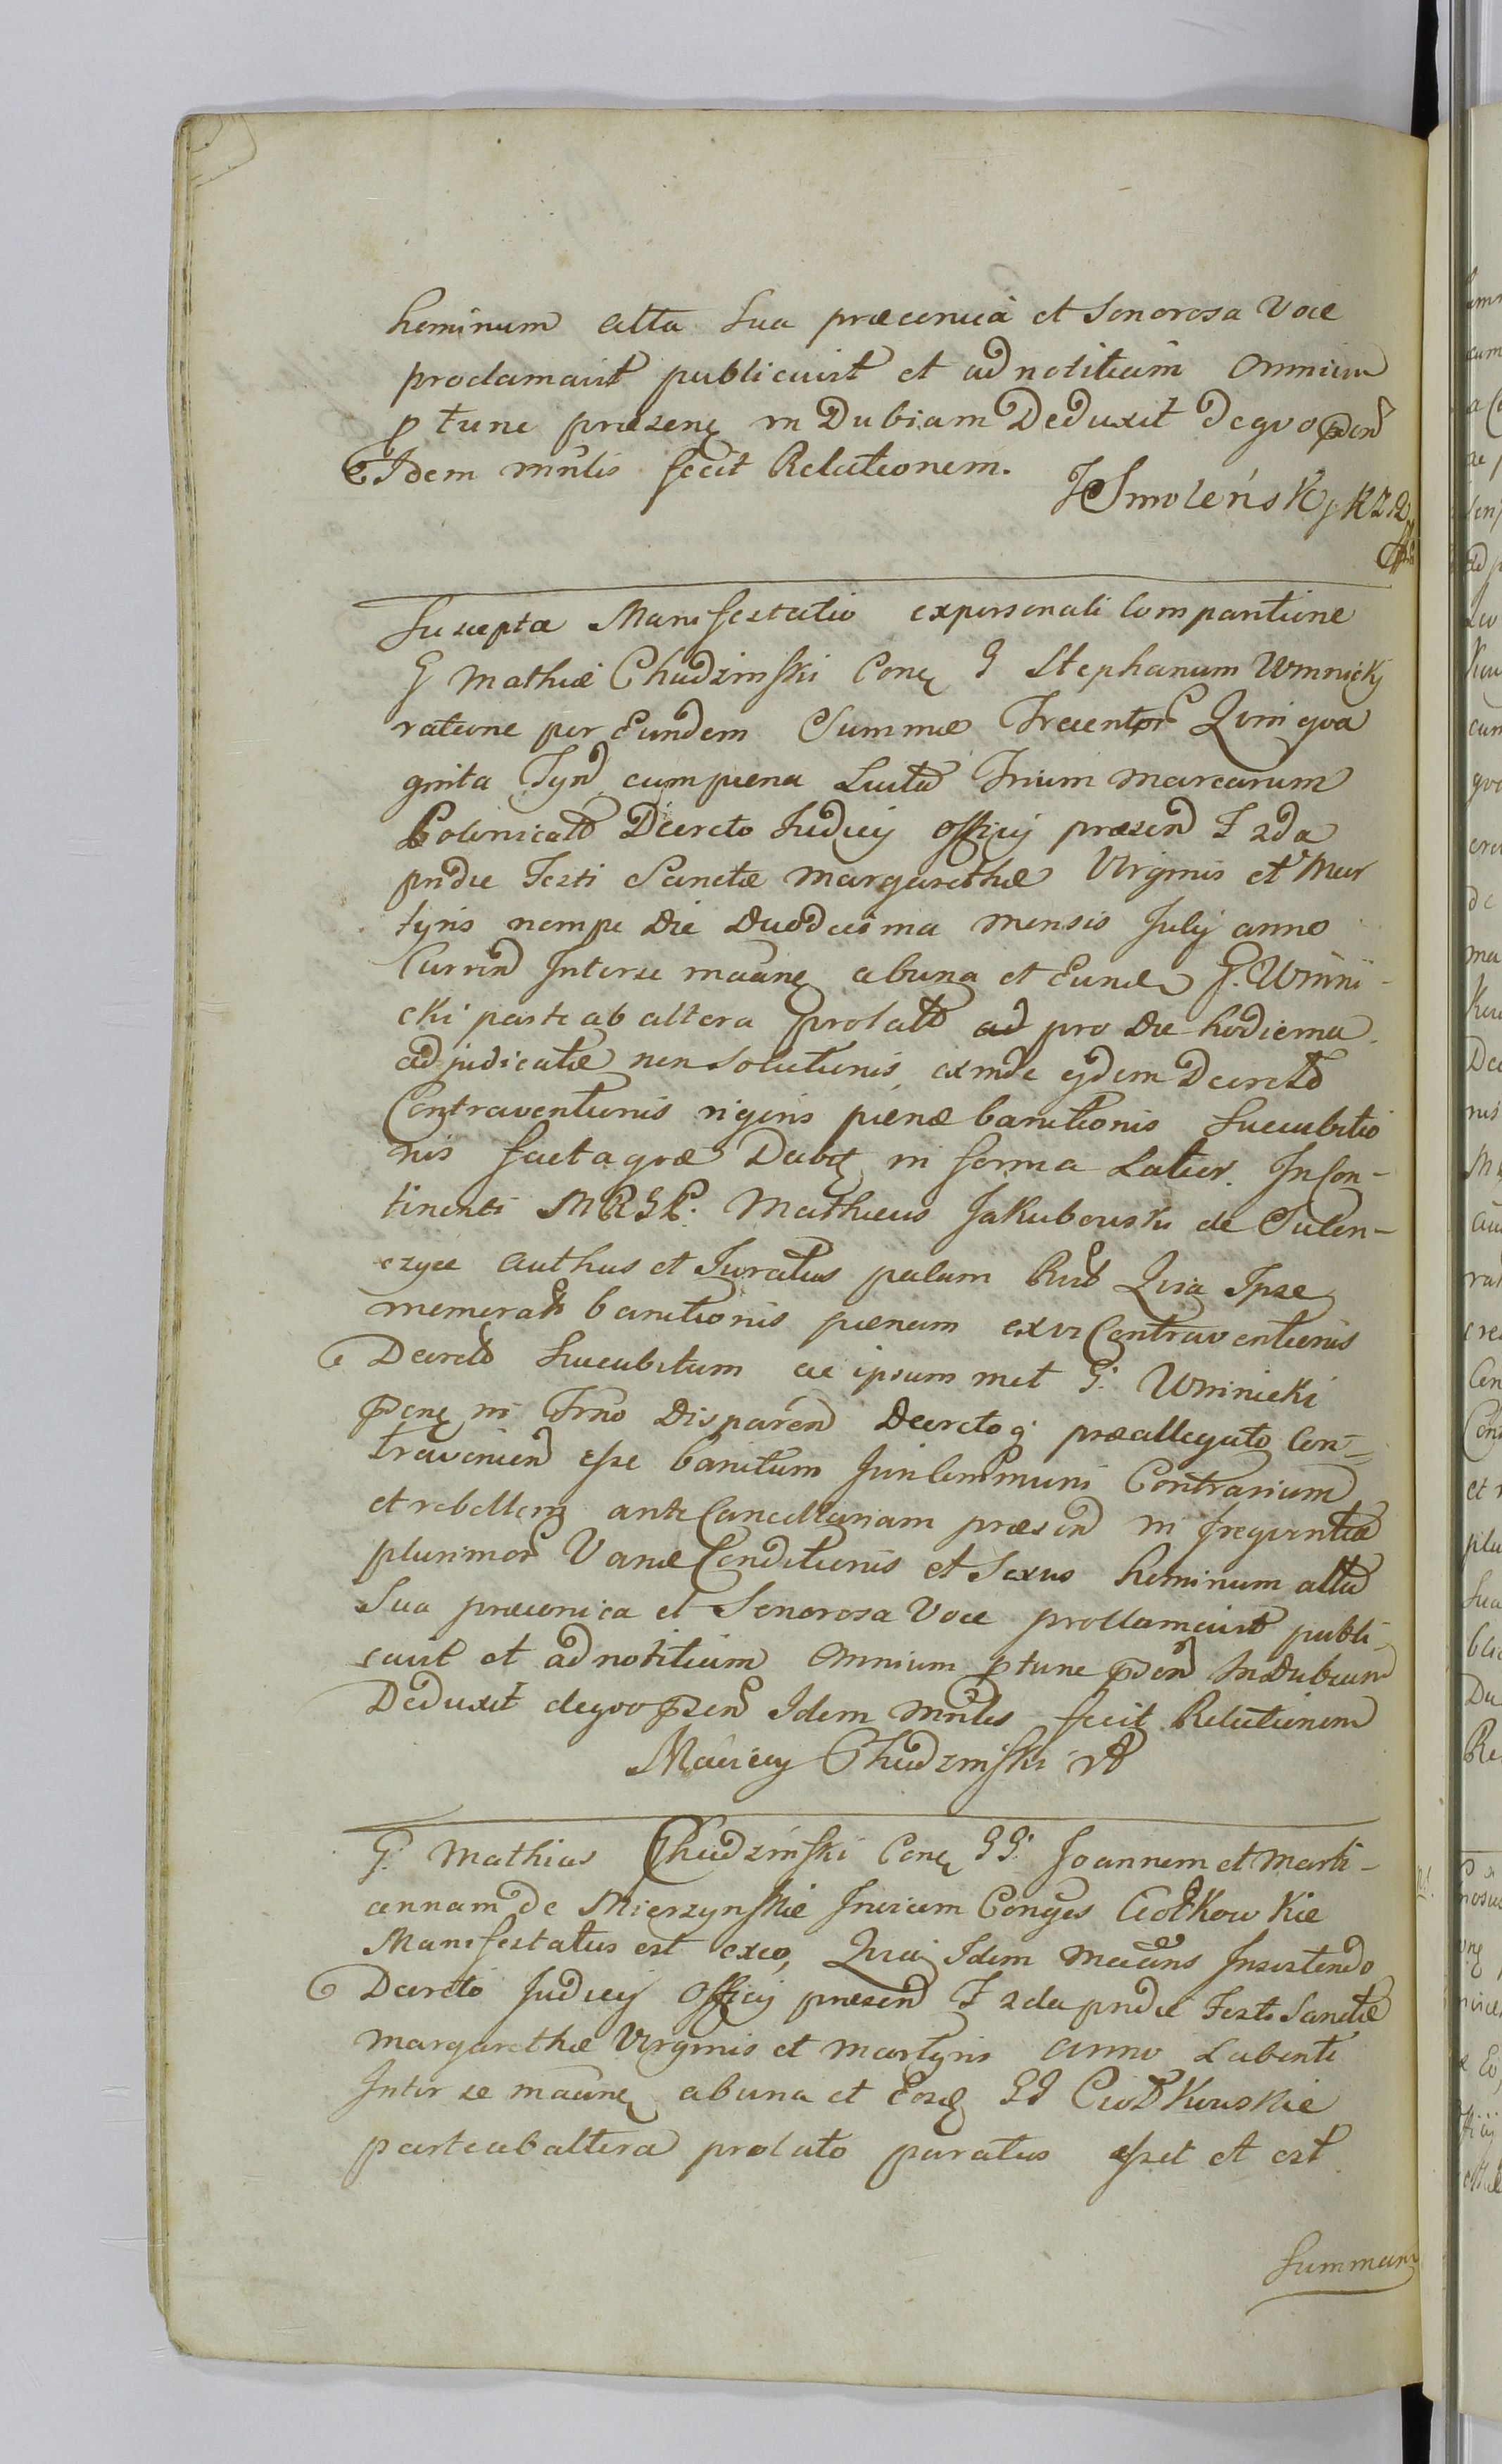 hominum alta Sua præconica et Sonorosa Voce
proclamavit publicavit et ad notitiam Omnium
p tunc præsenę in Dubiam Deduxit de quo
Idem mnlis fecit Relationem.
JSmoleńsky
Suscepta Manifestatio ex personali Comparitione
G Mathiæ Chudzinski Conę G Stephanum Winnicky
ratione per Eundem Summæ Trecentor Quinqua
ginta Tyn cum pæna Luita Trium Marcarum
Polonicalō Decreto Judicij Officij præsen F 2da
pridie Festi Sanctæ Margarethæ Virginis et Mar
tyris nempe Die Duodecima Mensis Julij anno
Curren Inter se maanę ab una et Eund G. Winni-
cki parte ab altera prolatō ad pro Die hodierna
adjudicatæ non Solutionis, exinde ejdem Decretō
Contraventionis rigoris pænæ banitionis Succubitio
nis facta quæ Dabit in forma Latior. In Con-
tinenti MRGP. Mathæus Jakubowski de Sulen-
czyce Authus et Juratus palam Quia Ipse
memorat banitionis pænam ex vi Contraventionis
Decretō Succubitum ac ipsum met G. Winnicki
in Trno Disparen Decreto q præallegato Con-
travenien esse banitum Juri Communi Contrarium
et rebellem ante Cancellariam præsen in frequentia
plurimor Variæ Conditionis et Sexus hominum alta
Sua præconica et Sonorosa Voce proclamavit publi-
cavit et ad notitiam Omnium p tunc In Dubiam
Deduxit de quo Idem mnlis fecit Relationem
Maciey Chudzinski
G. Mathias Chudzinski Conę GG. Joannem et Mari-
annam de Mierzynskie Invicem Conges Ciołkowkie
Manifestatus est ex eo, Quia Idem maans Insistendo
Decreto Judicij Officij præsen F 2da pridie Festi Sanctæ
Margarethæ Virginis et Martyris anno Labenti
Inter se maanę ab una et Eosd GG Ciołkowskie
parte ab altera prolato paratus esset et est
Summam